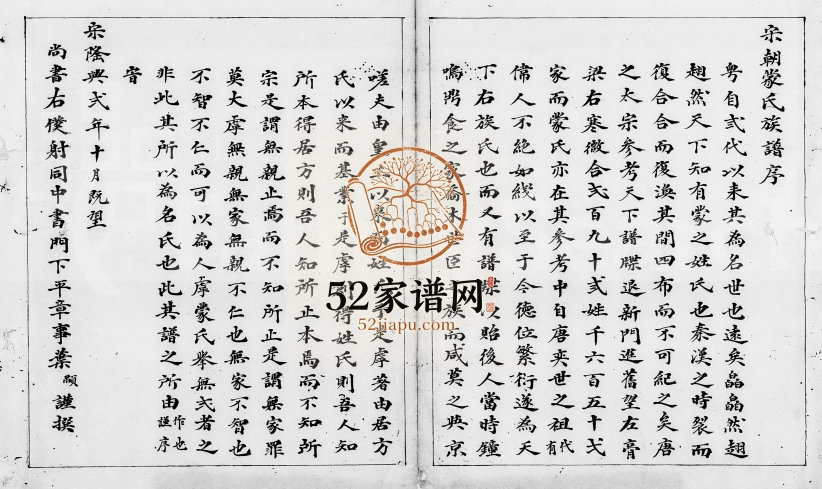 宋朝蒙氏族譜序
粤自弍代以来其為名世也遠矣皛皛然翹
翹然天下知有蒙之姓氏也秦漢之時裂而
復合合而復渙其間四布而不可紀之矣唐
之太宗參考天下譜牒退新門進舊望左膏
梁右寒微合弍百九十弍姓千六百五十弍
家而蒙氏亦在其參考中自唐奕世之祖代有
偉人不絶如綫以至于今德位繁衍遂為天
下右族氏也而又有譜牒以貽後人當時鐘
鳴鼎食之家喬木世臣族而咸莫之與京
嗟夫由皇以來而姓于是虖著由居方
氏以来而基業于是虖得姓氏則吾人知
所本得居方則吾人知所止本焉而不知所
宗是謂無親止焉而不知所止是謂無家罪
莫大虖無親無家無親不仁也無家不智也
不智不仁而可以為人虖蒙氏举無弍者之
非此其所以為名氏也此其譜之所由作也謹序
旹
宋隆興弍年十月既望
尚書右僕射同中書門下平章事葉顒謹撰
52家谱网
52jiapu.com